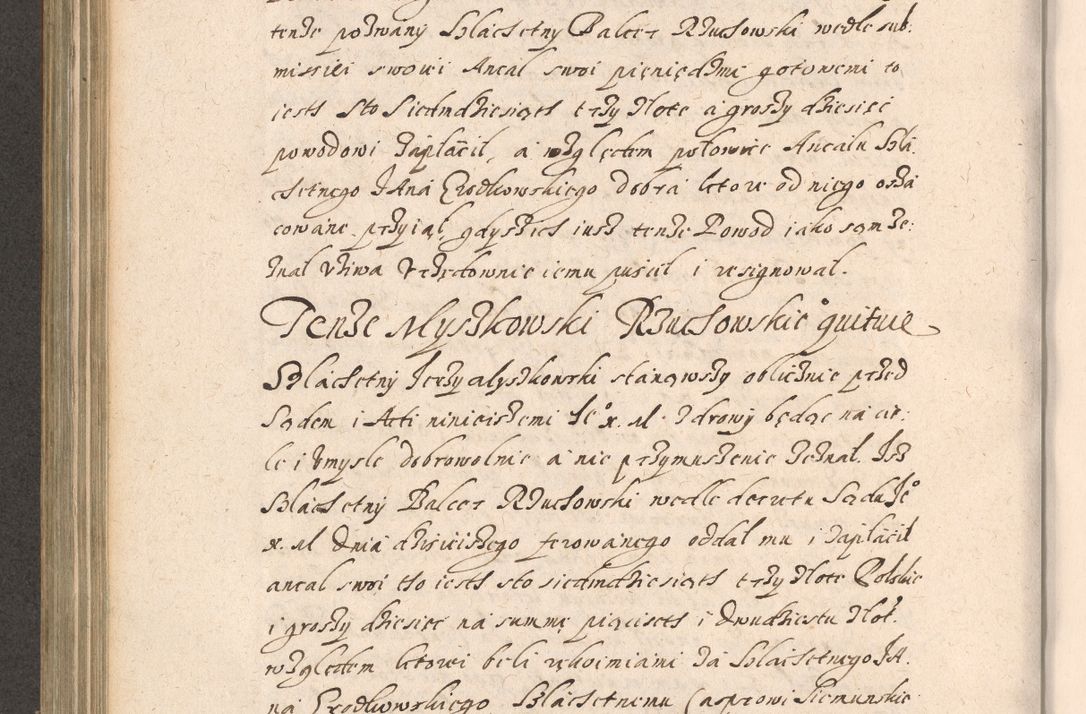 tenże pozwany Szlachetny Balcer Rzuchowski wedle sub:
missiei swoiei Ancal swoi pieniędzmi gotowemi to
iesth Sto Siedmdziesiąth trzy złote a groszy dziesięć
powodowi zapłacił, a względem połowice Ancalu Szla
chetnego Jana Grodkowskiego dobra ktore od niego osza
cowane przyiął, gdyszech iusz tenże Powod iako sam ze:
znał vżiwa vrzędownie iemu puścił i resignował.
Tenże Myszkowski Rzuchowskie° quituie
Szlachetny Jerzy Myszkowski stanąwszy oblicznie przed
Sądem i Acti ninieiszemi Je° x. M. Zdrowy będąc na cie:
le i vmysle dobrowolnie a nie przymuszenie zeznał. Isz
Szlachetny Balcer Rzuchowski wedle decretu Sądu Je°
x. M dnia dzisieiszego ferowanego oddał mu i zapłacił
ancal swoi tho iesth sto siedmdziesiąth trzy złote Polskie
i groszy dziesięć na summę pięciseth i dwudziestu złot.
względem ktorei beli rękoimiami za Szlachetnego JA.
na Grodkowskiego Szlachetnemu Casprowi Siemunskie